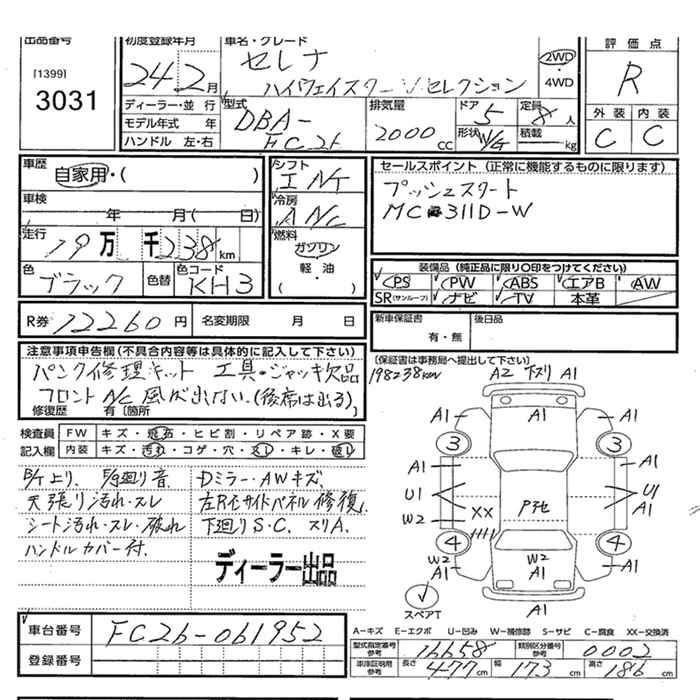 出品番号
[1399]
3031
初度登録年月
24 2月
車名・グレード
セレナ
ハイウェイスター Vセレクション
2WD
・
4WD
評価点
R
外装 内装
C C
ディーラー・並行
モデル年式 年
ハンドル 左・右
型式
DBA-
FC26
排気量
2000cc
ドア
5
形状 W/G
定員
8人
積載 kg
車歴
自家用・( )
車検
年 月( 日)
走行
19万 千238km
色
ブラック
色替
色コード
KH3
シフト
冷房
燃料
ガソリン
・
軽・油
( )
セールスポイント (正常に機能するものに限ります)
プッシュスタート
MC 311D-W
装備品 (純正品に限り〇印をつけてください)
PS PW ABS エアB AW
SR(サンルーフ) ナビ TV 本革
R券 12260円 名変期限 月 日
新車保証書 後日品
有・無
注意事項申告欄(不具合内容等は具体的に記入して下さい)
パンク修理キット 工具・ジャッキ欠品
フロントA/C 風が出ない.(後席は出る)
修復歴 有〔箇所
〔保証書は事務局へ提出して下さい〕
198238km
検査員 FW キズ・飛石・ヒビ割・リペア跡・X要
記入欄 内装 キズ・汚れ・コゲ・穴・スレ・キレ・破レ
天張り汚れ・スレ
シート汚れ・スレ・破れ
ハンドルカバー付.
Dミラー・AWキズ
下廻りS.C. スリA.
ディーラー出品
A2 下スリ A1
A1 A1 A1
3 3
A1 A1
U1 U1
A1
W2 XX
4 4
W2 W2
A1 A1 A1
A1
スペアT
A-キズ E-エクボ U-凹み W-補修跡 S-サビ C-腐食 XX-交換済
車台番号 FC26-061952
登録番号
型式指定番号 参考 16658 類別区分番号 参考 0002
車庫証明用 参考 長さ 477cm 幅 173cm 高さ 186cm